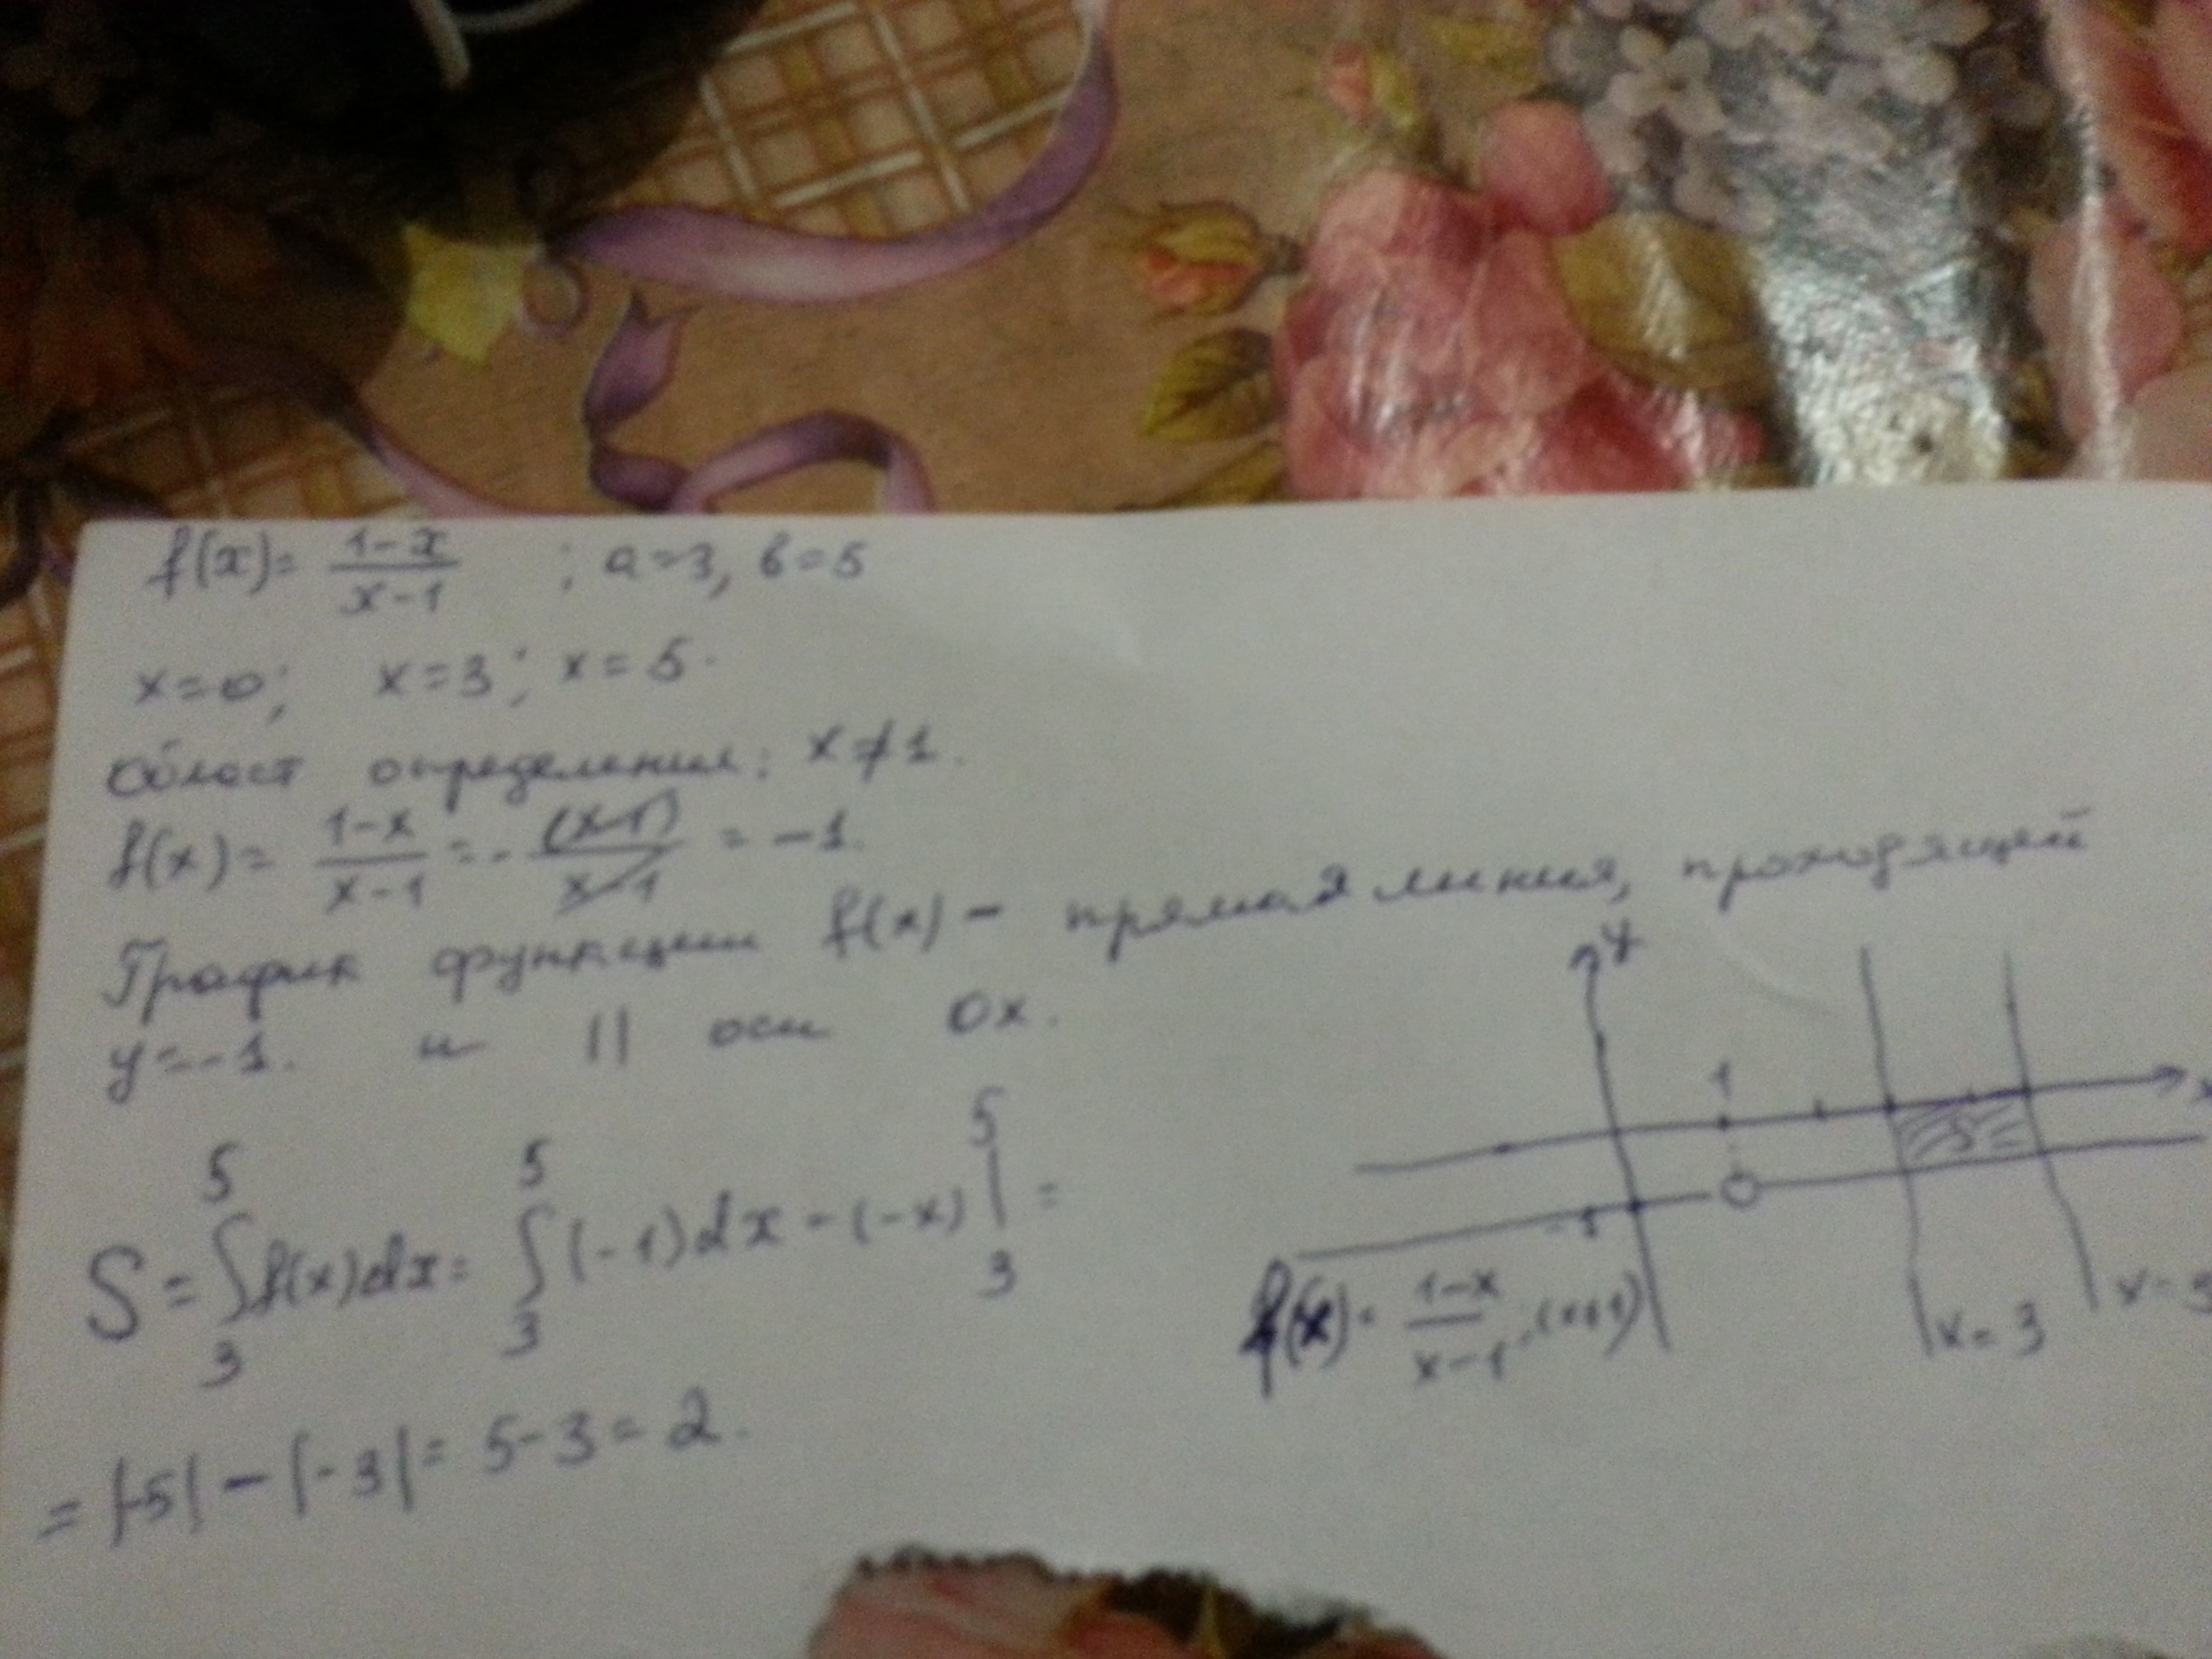 f(x)= (1-x)/(x-1) ; a=3, b=5
x=0; x=3; x=5.
Област определения: x≠1.
f(x)= (1-x)/(x-1) = - (x-1)/(x-1) = -1.
График функции f(x) - прямая линия, проходящей
y=-1. и || оси Ox.
S = ∫₃⁵ f(x)dx = ∫₃⁵ (-1)dx = (-x) |₃⁵ =
= |-5| - |-3| = 5-3 = 2.
y
1
x
S
-1
f(x)= (1-x)/(x-1), (x≠1)
x=3
x=5